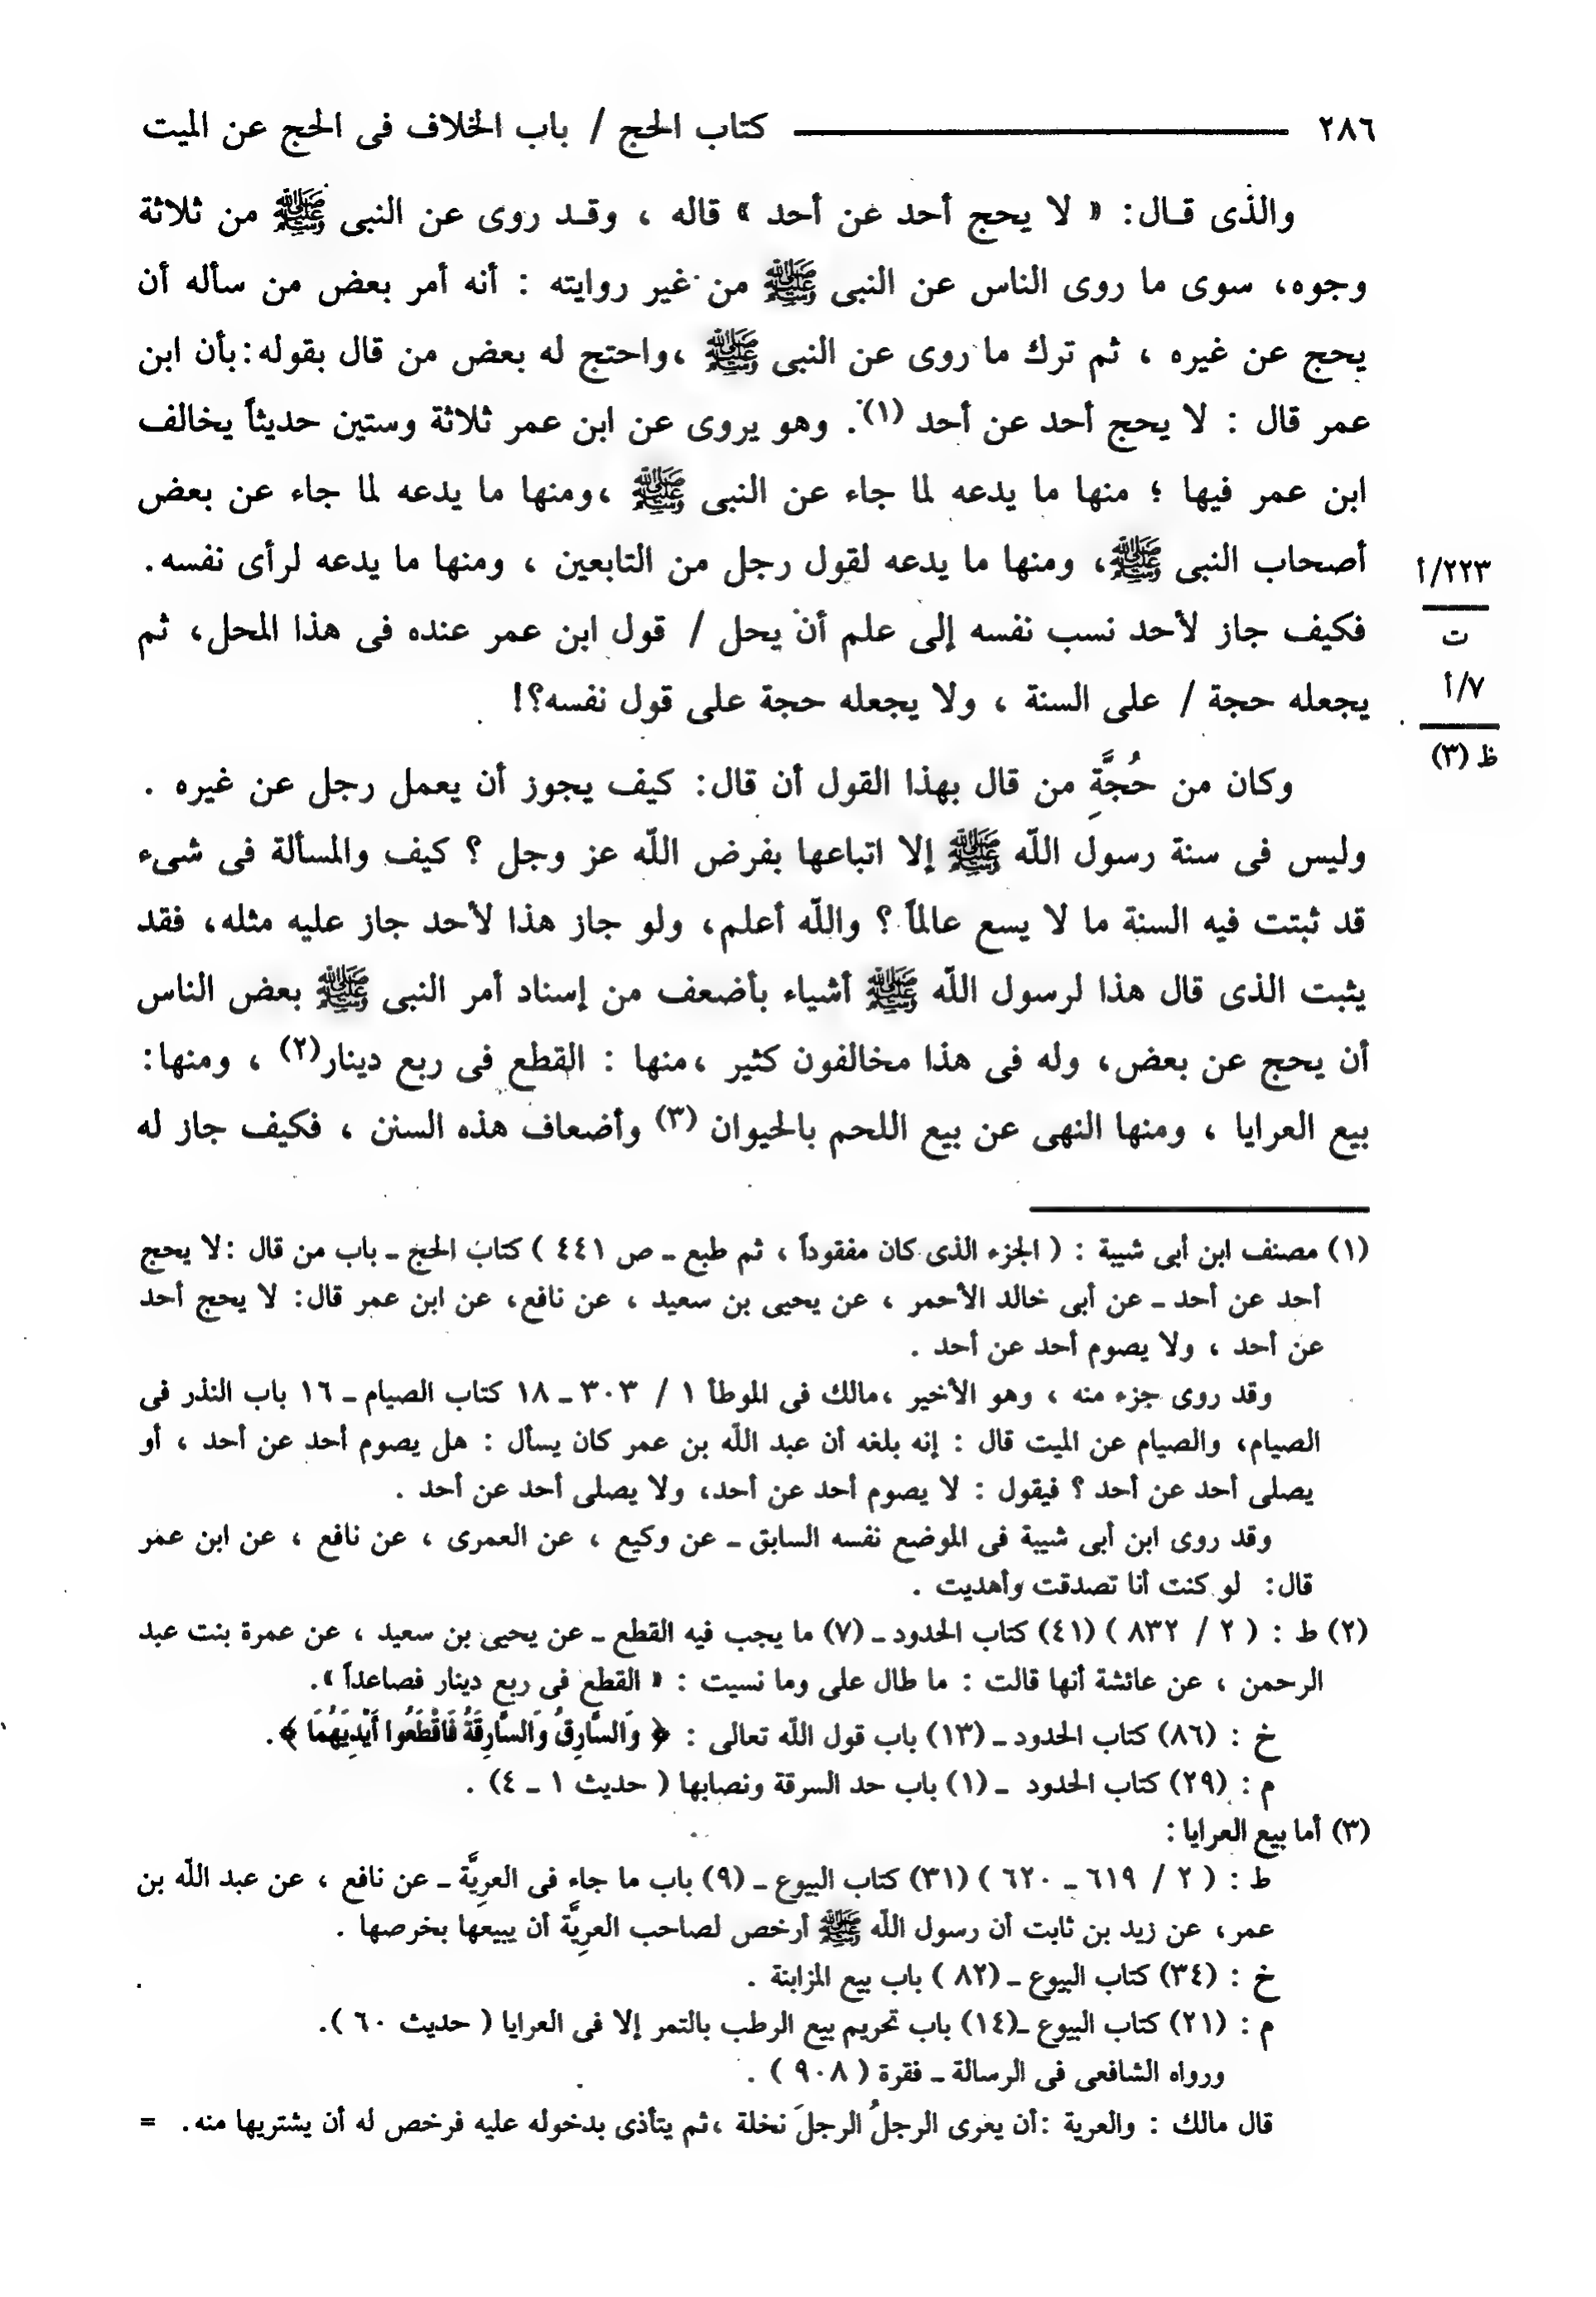 ٢٨٦ ــــــــــــ كتاب الحج / باب الخلاف فى الحج عن الميت
والذى قـال: « لا يحج أحد عن أحد » قاله ، وقـد روى عن النبى ﷺ من ثلاثة
وجوه، سوى ما روى الناس عن النبى ﷺ من غير روايته : أنه أمر بعض من سأله أن
يحج عن غيره ، ثم ترك ما روى عن النبى ﷺ ،واحتج له بعض من قال بقوله:بأن ابن
عمر قال : لا يحج أحد عن أحد (١). وهو يروى عن ابن عمر ثلاثة وستين حديثاً يخالف
ابن عمر فيها ؛ منها ما يدعه لما جاء عن النبى ﷺ ،ومنها ما يدعه لما جاء عن بعض
أصحاب النبى ﷺ، ومنها ما يدعه لقول رجل من التابعين ، ومنها ما يدعه لرأى نفسه.
٢٢٣/أ
فكيف جاز لأحد نسب نفسه إلى علم أن يحل / قول ابن عمر عنده فى هذا المحل، ثم
ت
يجعله حجة / على السنة ، ولا يجعله حجة على قول نفسه؟!
٧/أ
ظ (٣)
وكان من حُجَّةِ من قال بهذا القول أن قال: كيف يجوز أن يعمل رجل عن غيره .
وليس فى سنة رسول اللّه ﷺ إلا اتباعها بفرض اللّه عز وجل ؟ كيف والمسألة فى شىء
قد ثبتت فيه السنة ما لا يسع عالماً ؟ واللّه أعلم، ولو جاز هذا لأحد جاز عليه مثله، فقد
يثبت الذى قال هذا لرسول اللّه ﷺ أشياء بأضعف من إسناد أمر النبى ﷺ بعض الناس
أن يحج عن بعض، وله فى هذا مخالفون كثير ،منها : القطع فى ربع دينار(٢) ، ومنها:
بيع العرايا ، ومنها النهى عن بيع اللحم بالحيوان (٣) وأضعاف هذه السنن ، فكيف جاز له
(١) مصنف ابن أبى شيبة : ( الجزء الذى كان مفقوداً ، ثم طبع ـ ص ٤٤١ ) كتاب الحج ـ باب من قال :لا يحج
أحد عن أحد ـ عن أبى خالد الأحمر ، عن يحيى بن سعيد ، عن نافع، عن ابن عمر قال: لا يحج أحد
عن أحد ، ولا يصوم أحد عن أحد .
وقد روى جزء منه ، وهو الأخير ،مالك فى الموطأ ١ / ٣٠٣ ـ ١٨ كتاب الصيام ـ ١٦ باب النذر فى
الصيام، والصيام عن الميت قال : إنه بلغه أن عبد اللّه بن عمر كان يسأل : هل يصوم أحد عن أحد ، أو
يصلى أحد عن أحد ؟ فيقول : لا يصوم أحد عن أحد، ولا يصلى أحد عن أحد .
وقد روى ابن أبى شيبة فى الموضع نفسه السابق ـ عن وكيع ، عن العمرى ، عن نافع ، عن ابن عمر
قال: لو كنت أنا تصدقت وأهديت .
(٢) ط : ( ٢ / ٨٣٢ ) (٤١) كتاب الحدود ـ (٧) ما يجب فيه القطع ـ عن يحيى بن سعيد ، عن عمرة بنت عبد
الرحمن ، عن عائشة أنها قالت : ما طال على وما نسيت : « القطع فى ربع دينار فصاعداً ».
خ : (٨٦) كتاب الحدود ـ (١٣) باب قول اللّه تعالى : ﴿ وَالسَّارِقُ وَالسَّارِقَةُ فَاقْطَعُوا أَيْدِيَهُمَا ﴾.
م : (٢٩) كتاب الحدود ـ (١) باب حد السرقة ونصابها ( حديث ١ ـ ٤) .
(٣) أما بيع العرايا :
ط : ( ٢ / ٦١٩ ـ ٦٢٠ ) (٣١) كتاب البيوع ـ (٩) باب ما جاء فى العرِيَّة ـ عن نافع ، عن عبد اللّه بن
عمر، عن زيد بن ثابت أن رسول اللّه ﷺ أرخص لصاحب العرِيَّة أن يبيعها بخرصها .
خ : (٣٤) كتاب البيوع ـ (٨٢ ) باب بيع المزابنة .
م : (٢١) كتاب البيوع ـ(١٤) باب تحريم بيع الرطب بالتمر إلا فى العرايا ( حديث ٦٠ ).
ورواه الشافعى فى الرسالة ـ فقرة ( ٩٠٨ ) .
قال مالك : والعرية :أن يعرى الرجلُ الرجلَ نخلة ،ثم يتأذى بدخوله عليه فرخص له أن يشتريها منه. =